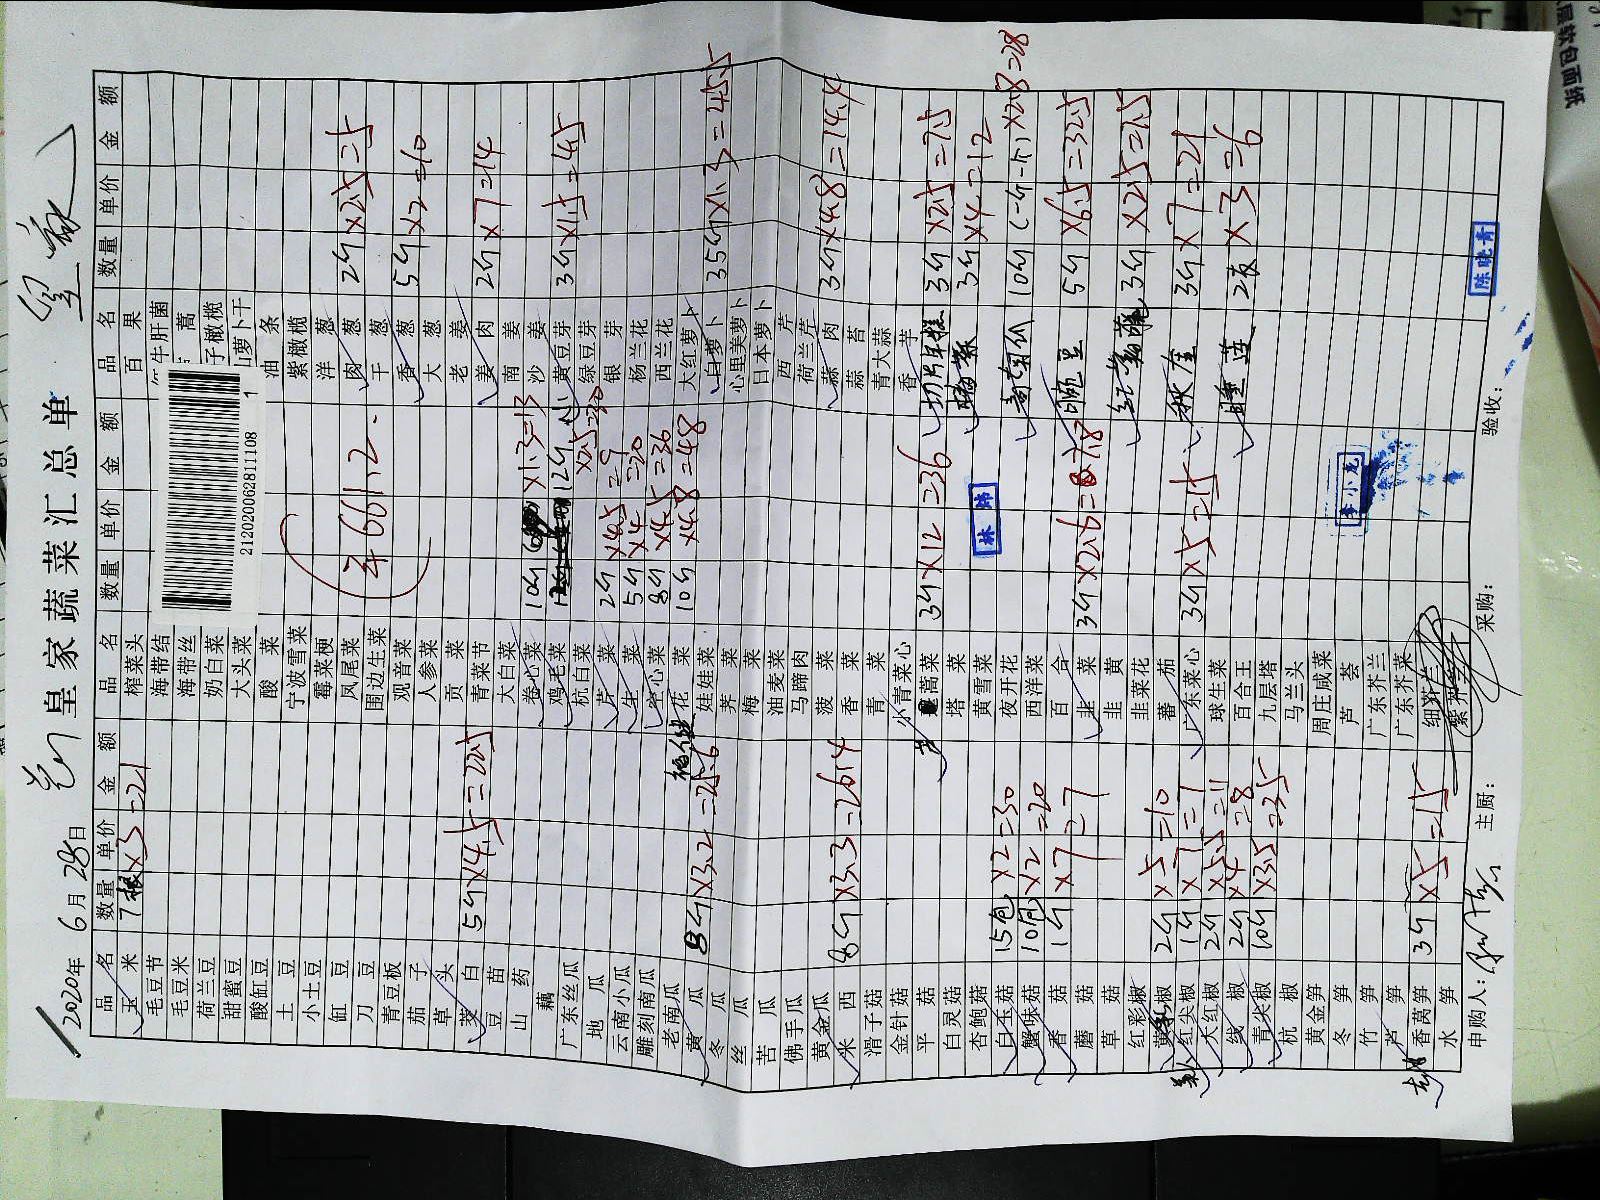 皇家蔬菜汇总单
2020年 6月 28日
212020062811108 1
品名 数量 单价 金额
玉米 7根×3=21
毛豆节
毛豆米
荷兰豆
甜蜜豆
酸缸豆
土豆
小土豆
缸豆
刀豆
青豆板
茄子
草头
茭白 5斤×4.5=22.5
豆苗
山药
藕
广东丝瓜
地瓜
云南小瓜
雕刻南瓜
老南瓜
黄瓜 8斤×3.2=25.6
冬瓜
丝瓜
苦瓜
佛手瓜
黄金瓜
米西 8斤×3.3=26.4
滑子菇
金针菇
平菇
白灵菇
杏鲍菇
白玉菇 15包×2=30
蟹味菇 10包×2=20
香菇 1斤×7=7
蘑菇
草菇
红彩椒
黄彩椒 2斤×5=10
红尖椒 1斤×7=7
大红椒 2斤×5.5=11
线椒 2斤×4=8
青尖椒 10斤×3.5=35
杭椒
黄金笋
冬笋
竹笋
芦笋
香莴笋 3斤×5=15
水笋
品名 数量 单价 金额
榨菜头
海带结
海带丝
奶白菜
大头菜
酸菜
宁波雪菜
霉菜梗
凤尾菜
围边生菜
观音菜
人参菜
贡菜
青菜节
大白菜
卷心菜 10斤×1.3=13
鸡毛菜 12斤
杭白菜 ×2.5=30
芹菜 2斤×4.5=9
生菜 5斤×4=20
空心菜 8斤×4.5=36
花菜 10斤×4.8=48
娃娃菜
荠菜
梅菜
油麦菜
马蹄肉
菠菜
香菜
青菜
小青菜心
蒿菜 3斤×12=36
塔菜
黄雪菜
夜开花
西洋菜
百合
韭菜 3斤×2.6=7.8
韭黄
韭菜花
蕃茄
广东菜心 3斤×5=15
球生菜
百合王
九层塔
马兰头
周庄咸菜
芦荟
广东芥兰
广东芥菜
¥661.2
品名 数量 单价 金额
百果
牛肝菌
蒿
子橄榄
山萝卜干
油条
紫橄榄
洋葱
肉葱 2斤×2.5=5
干葱
香葱 5斤×2=10
大葱
老姜
姜肉 2斤×7=14
南姜
沙姜
黄豆芽 3斤×1.5=4.5
绿豆芽
银芽
杨兰花
西兰花
大红萝卜
白萝卜 35斤×1.3=45.5
心里美萝卜
日本萝卜
西芹
荷兰芹
蒜肉 3斤×4.8=14.4
蒜苔
青大蒜
香芋
3斤×2.5=7.5
3斤×4=12
10斤 ×2.8=28
豌豆 5斤×6.5=32.5
3斤×2.5=7.5
秋葵 3斤×7=21
睡莲 2支×3=6
申购人：
主厨：
采购：
验收：
陈晓青
李小龙